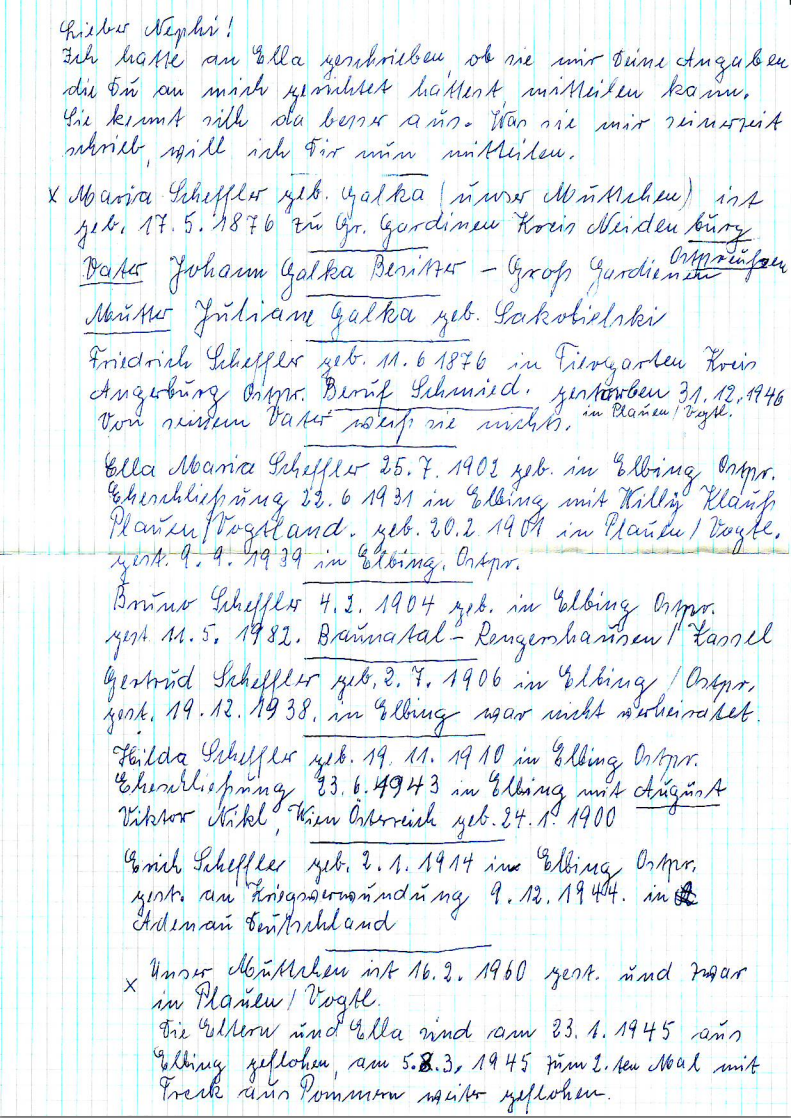 Lieber Nephi!
Ich hatte an Ella geschrieben, ob sie mir Deine Angaben
die Du an mich gerichtet hattest, mitteilen kann.
Sie kennt sich da besser aus. Was sie mir seinerzeit
schrieb, will ich Dir nun mitteilen.
x Maria Scheffler geb. Galka (unser Muttchen) ist
geb. 17.5.1876 zu Gr. Gardinen Kreis Neidenburg
Ostpreußen
Vater Johann Galka Besitzer – Groß Gardienen
Mutter Juliane Galka geb. Sakobielski
Friedrich Scheffler geb. 11.6 1876 in Tiergarten Kreis
Angerburg Ostpr. Beruf Schmied. gestorben 31.12.1946
in Plauen/Vogtl.
Von seinem Vater weiß sie nichts.
Ella Maria Scheffler 25.7.1902 geb. in Elbing Ostpr.
Eheschließung 22.6 1931 in Elbing mit Willy Klauß
Plauen/Vogtland. geb. 20.2.1901 in Plauen/Vogtl.
gest. 9.9.1939 in Elbing, Ostpr.
Bruno Scheffler 4.2.1904 geb. in Elbing Ostpr.
gest 11.5.1982. Baunatal – Rengershausen/Kassel
Gertrud Scheffler geb. 2.7.1906 in Elbing/Ostpr.
gest. 19.12.1938. in Elbing war nicht verheiratet.
Hilda Scheffler geb. 19.11.1910 in Elbing Ostpr.
Eheschließung 23.6.1943 in Elbing mit August
Viktor Nikl, Wien Österreich geb. 24.1.1900
Erich Scheffler geb. 2.1.1914 in Elbing Ostpr.
gest. an Kriegsverwundung 9.12.1944. in
Adenau Deutschland
x Unser Muttchen ist 16.2.1960 gest. und zwar
in Plauen/Vogtl.
Die Eltern und Ella sind am 23.1.1945 aus
Elbing geflohen, am 5.8.3.1945 zum 2.ten Mal mit
Treck aus Pommern weiter geflohen.